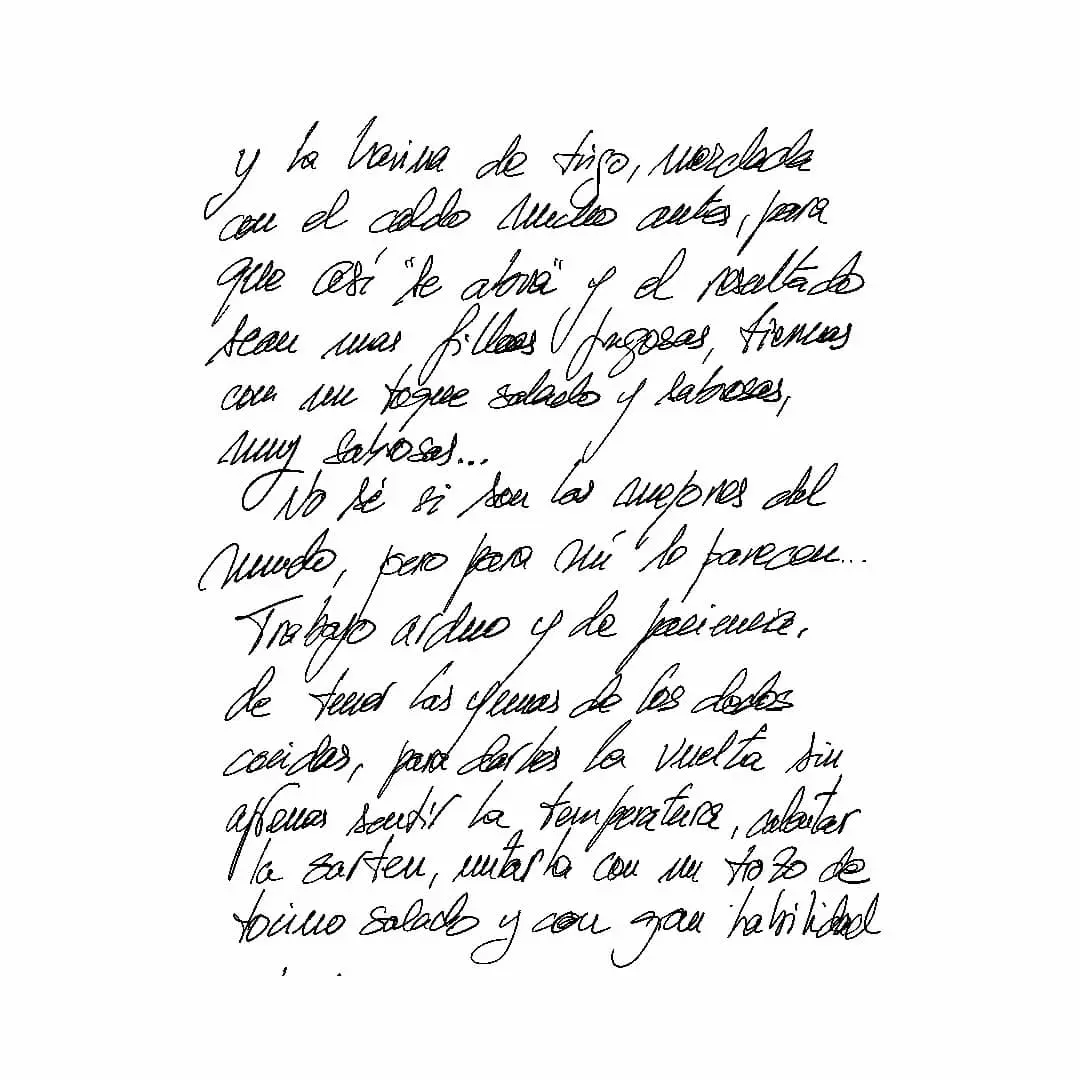 y la harina de trigo, mezclada
con el caldo mucho antes, para
que así "se abra" y el resultado
sean unas filloas jugosas, tiernas
con un toque salado y sabrosas,
muy sabrosas...
No sé si son las mejores del
mundo, pero para mí lo parecen...
Trabajo arduo y de paciencia,
de tener las yemas de los dedos
cocidas, para darles la vuelta sin
apenas sentir la temperatura, calentar
la sarten, untarla con un tozo de
tocino salado y con gran habilidad